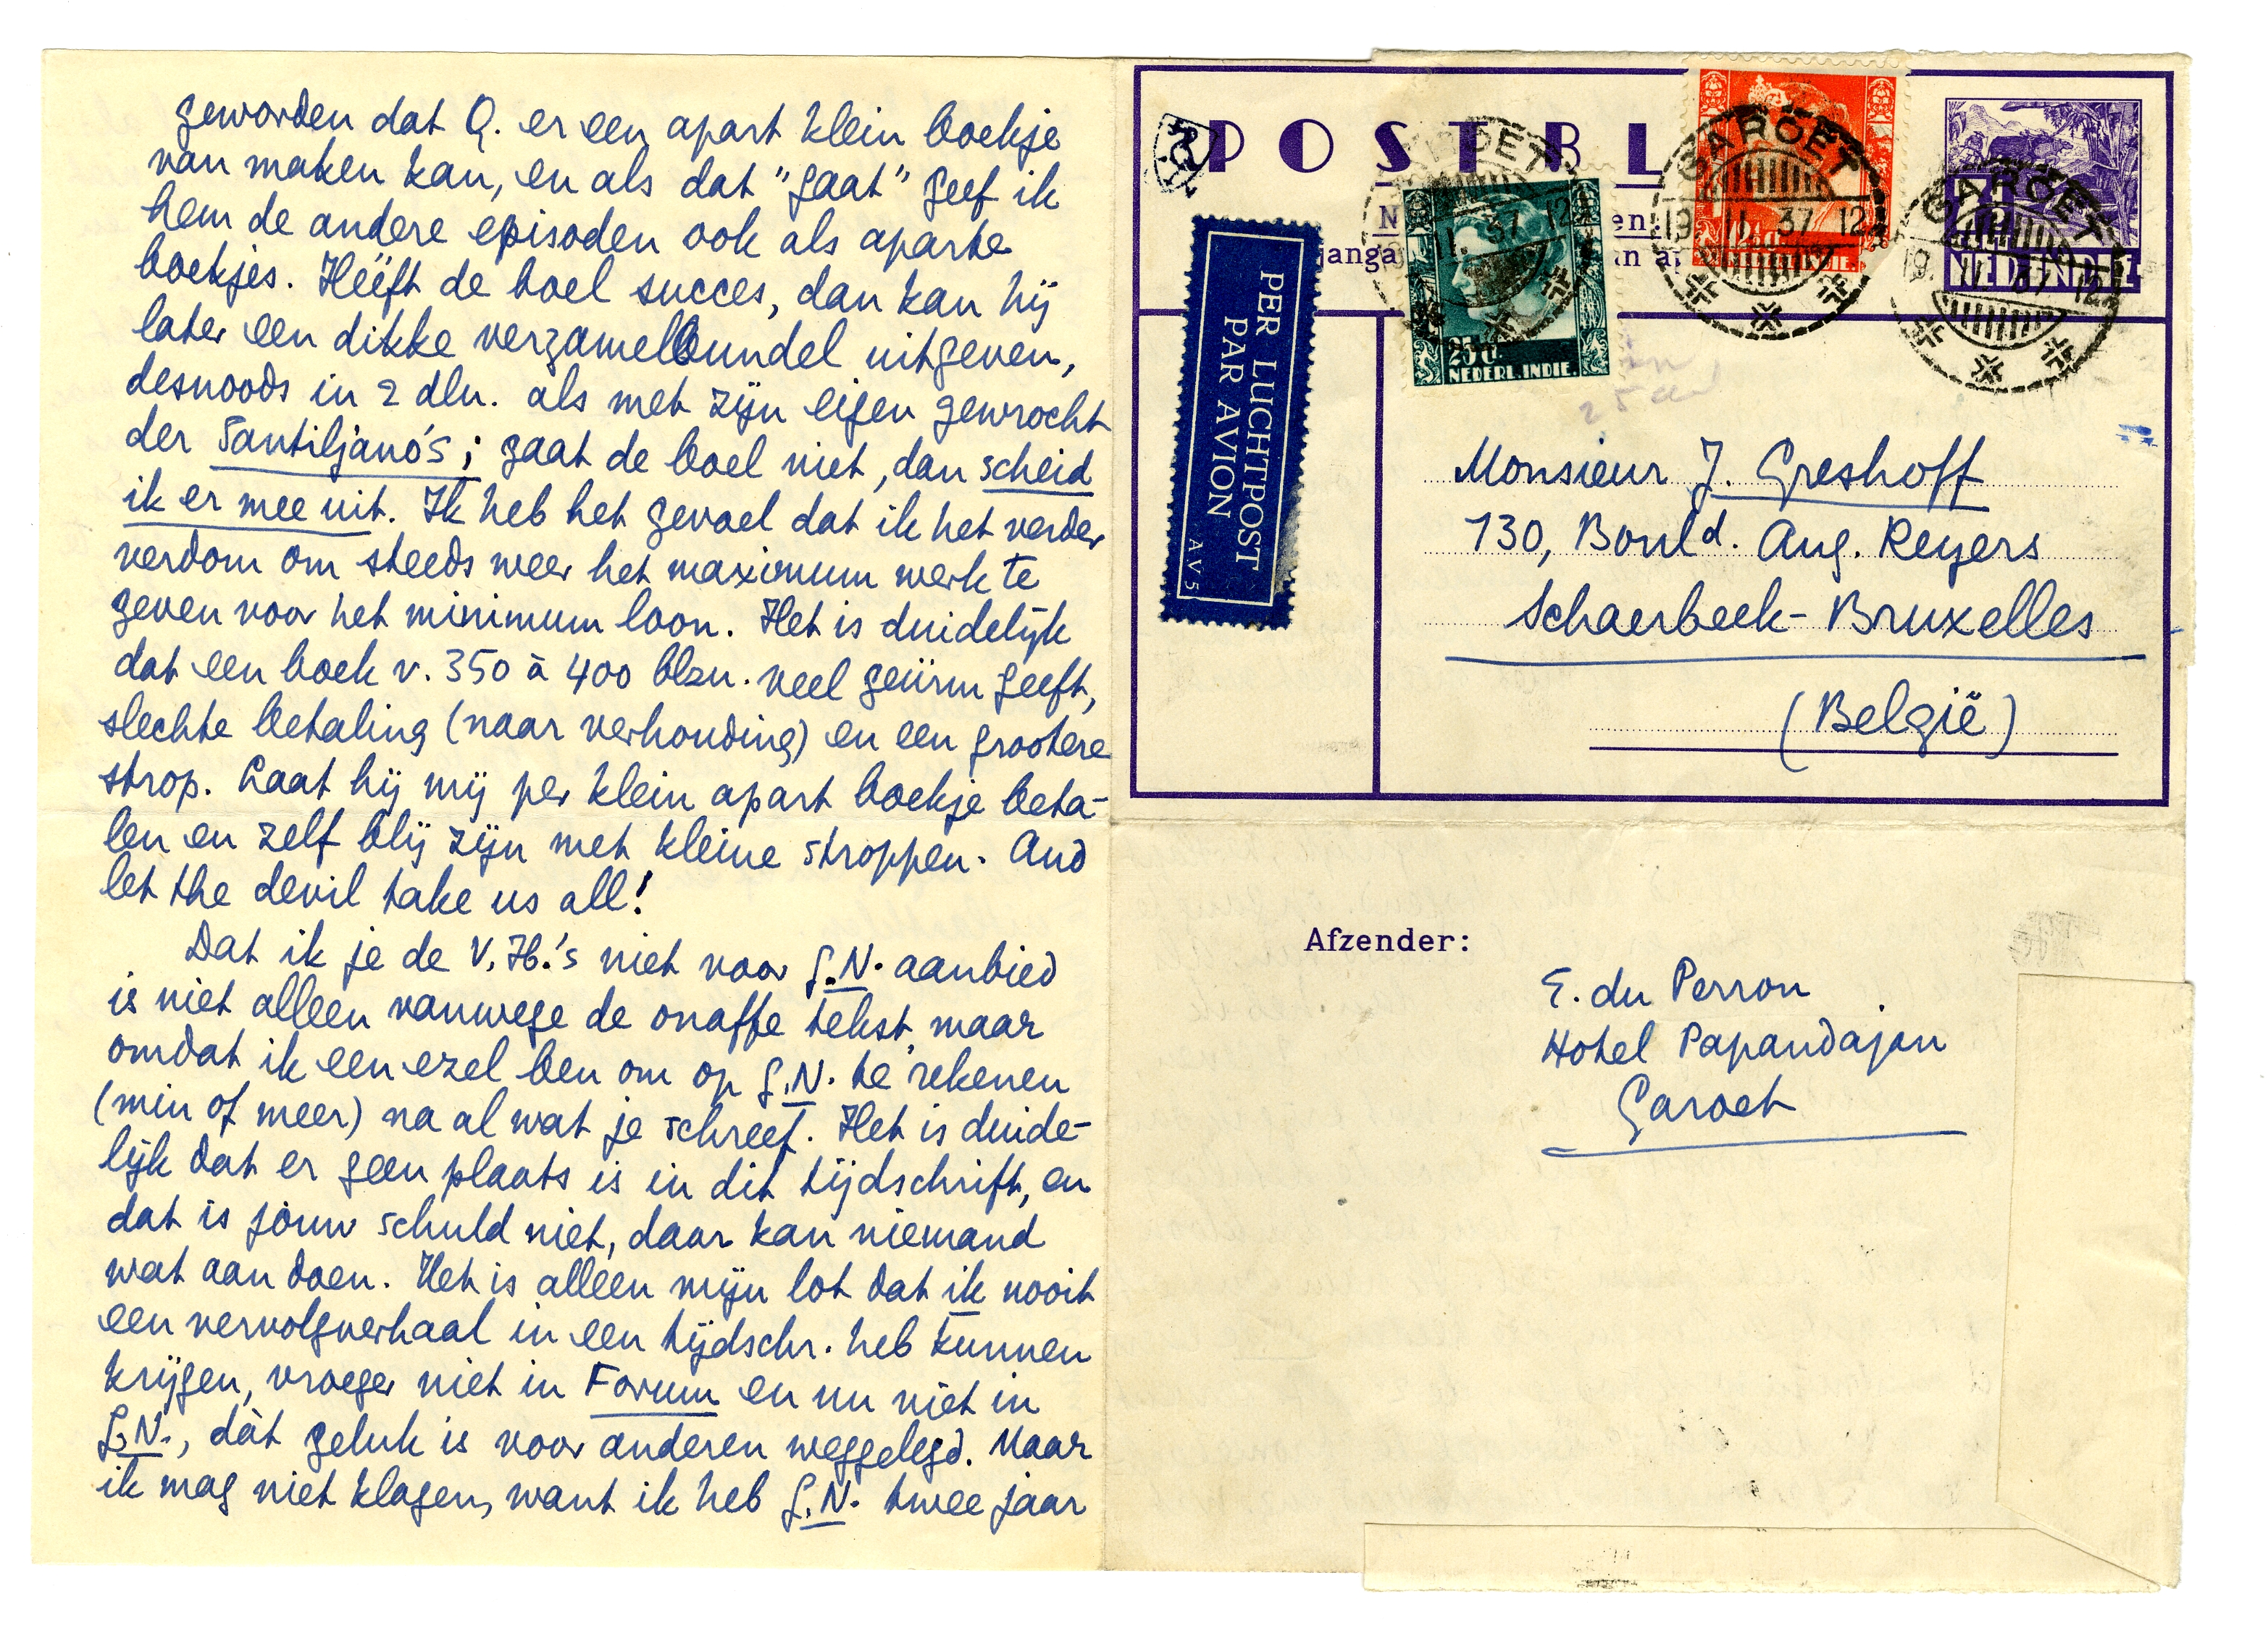 geworden dat Q. er een apart klein boekje
van maken kan, en als dat "gaat" geef ik
hem de andere episoden ook als aparte
boekjes. Hééft de boel succes, dan kan hij
later een dikke verzamelbundel uitgeven,
desnoods in 2 dln. als met zijn eigen gewrocht
der Santiljano's; gaat de boel niet, dan scheid
ik er mee uit. Ik heb het gevoel dat ik het verder
verdom om steeds weer het maximum werk te
geven voor het minimum loon. Het is duidelijk
dat een boek v. 350 à 400 blzn. veel geürm geeft,
slechte betaling (naar verhouding) en een grootere
strop. Laat hij mij per klein apart boekje beta-
len en zelf blij zijn met kleine stroppen. And
let the devil take us all!
Dat ik je de V.H.'s niet voor G.N. aanbied
is niet alleen vanwege de onaffe tekst, maar
omdat ik een ezel ben om op G.N. te rekenen
(min of meer) na al wat je schreef. Het is duide-
lijk dat er geen plaats is in dit tijdschrift, en
dat is jouw schuld niet, daar kan niemand
wat aan doen. Het is alleen mijn lot dat ik nooit
een vervolgverhaal in een tijdschr. heb kunnen
krijgen, vroeger niet in Forum en nu niet in
G.N., dàt geluk is voor anderen weggelegd. Maar
ik mag niet klagen, want ik heb G.N. twee jaar
POSTBL
anga
PER LUCHTPOST
PAR AVION
AV5
25 ct.
NEDERL. INDIE.
GAROET
19.11.37 12
GAROET
19.11.37 12
NED INDIE
Monsieur J. Greshoff
130, Bould. Aug. Reyers
Schaerbeek-Bruxelles
(België)
Afzender:
E. du Perron
Hotel Papandajan
Garoet